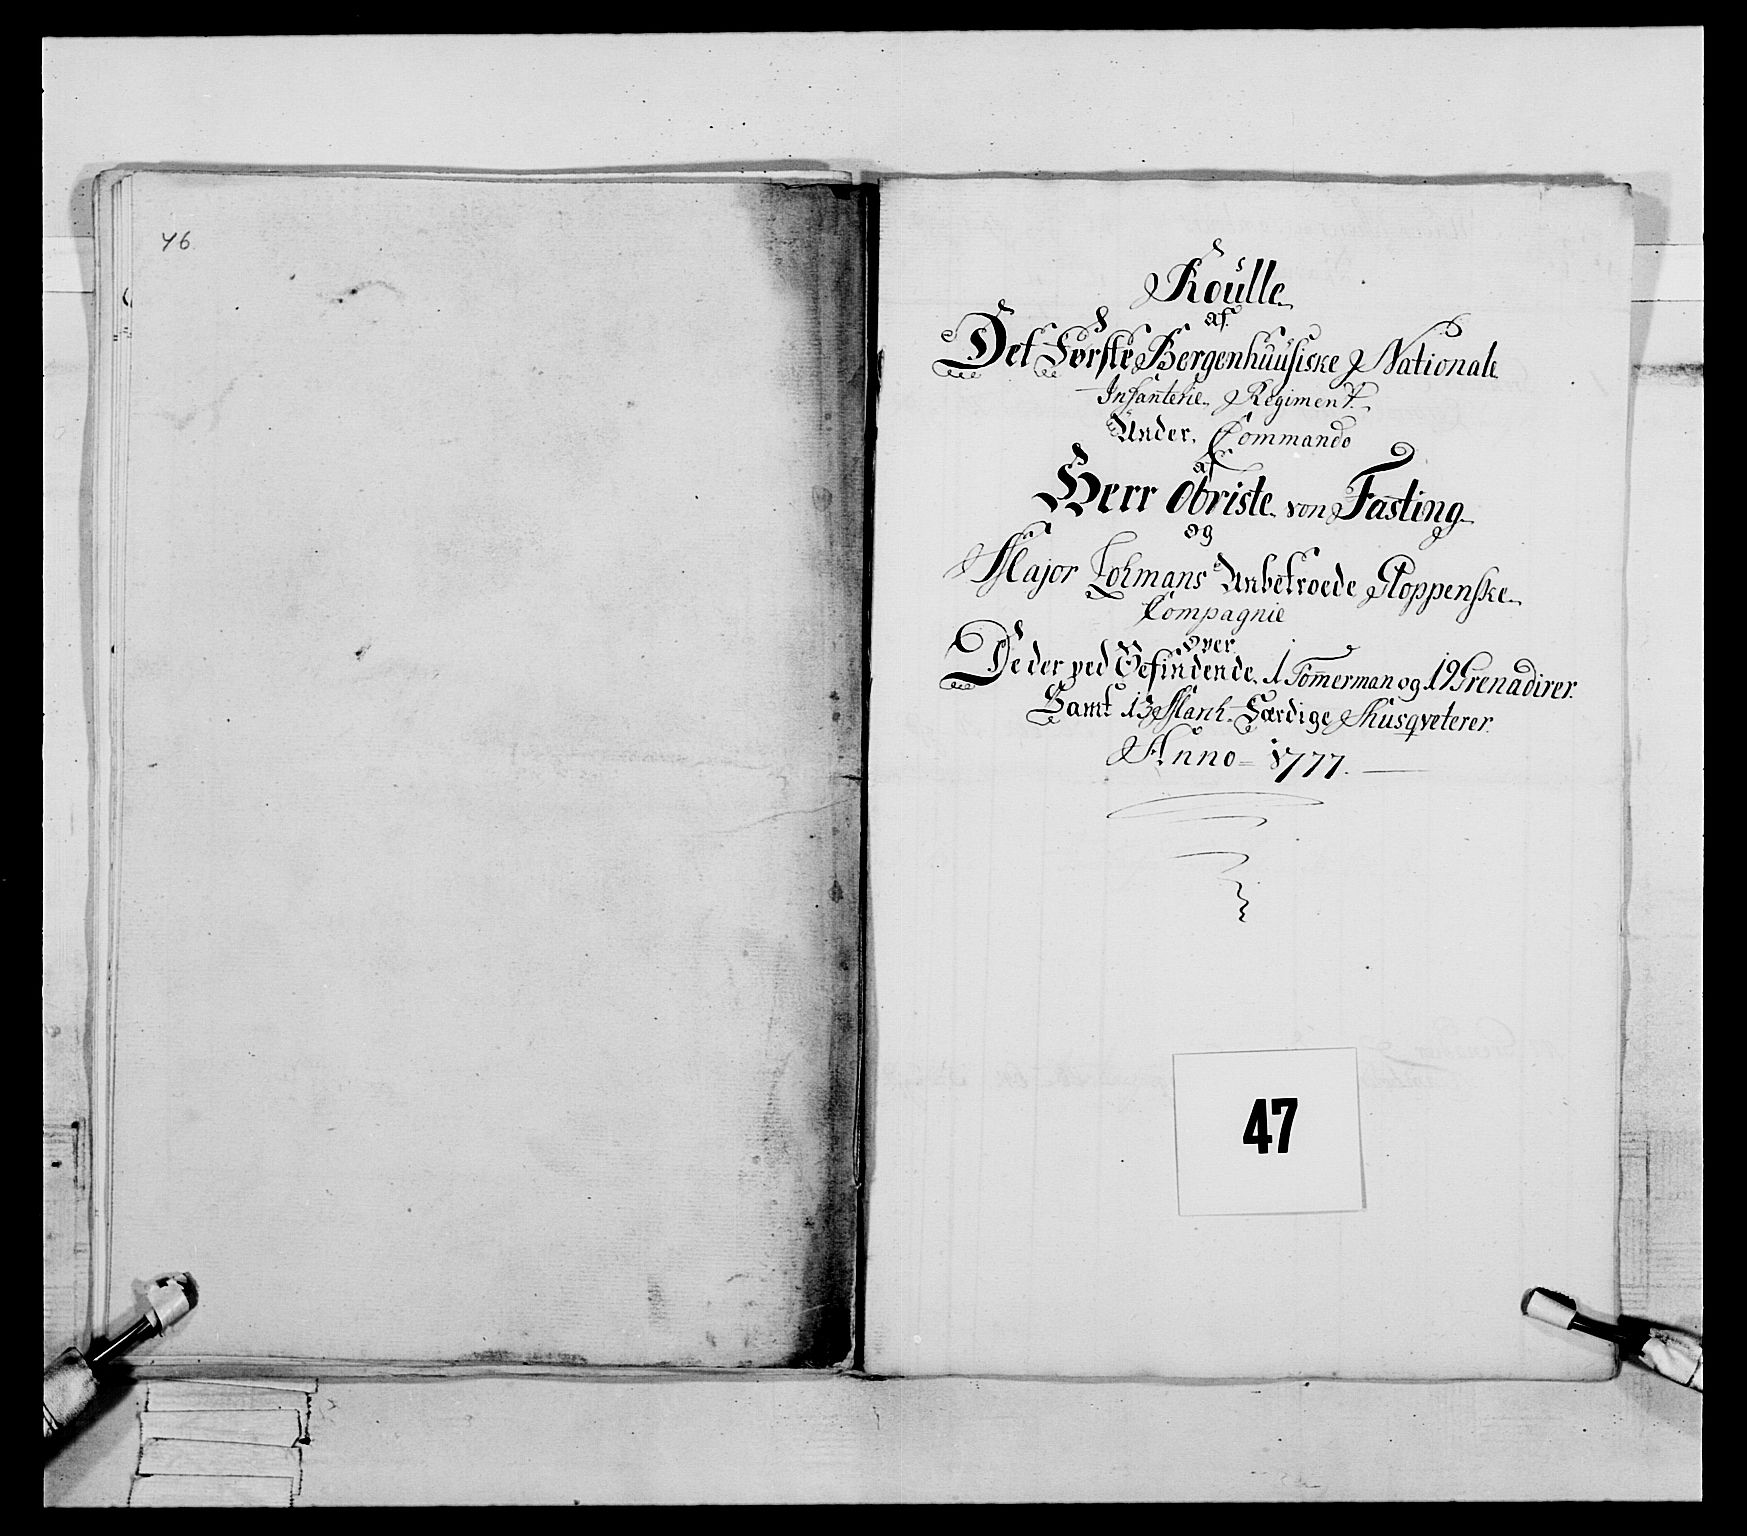 46.
Roulle
af.
Det Første Bergenhuusiske Nationale
Infanterie Regiment.
Under. Commando
af
Herr Obriste von Fasting
og
Major Lohmans Anbetroede Gloppenske
Compagnie
over
De der ved Befindende. 1 Tom̄erman og 19 Grenadirer.
Samt 13 March. Færdige Musqveterer.
Anno 1777.
47